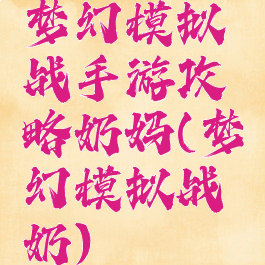 梦幻模拟
战手游攻
略奶妈(梦
幻模拟战
奶)